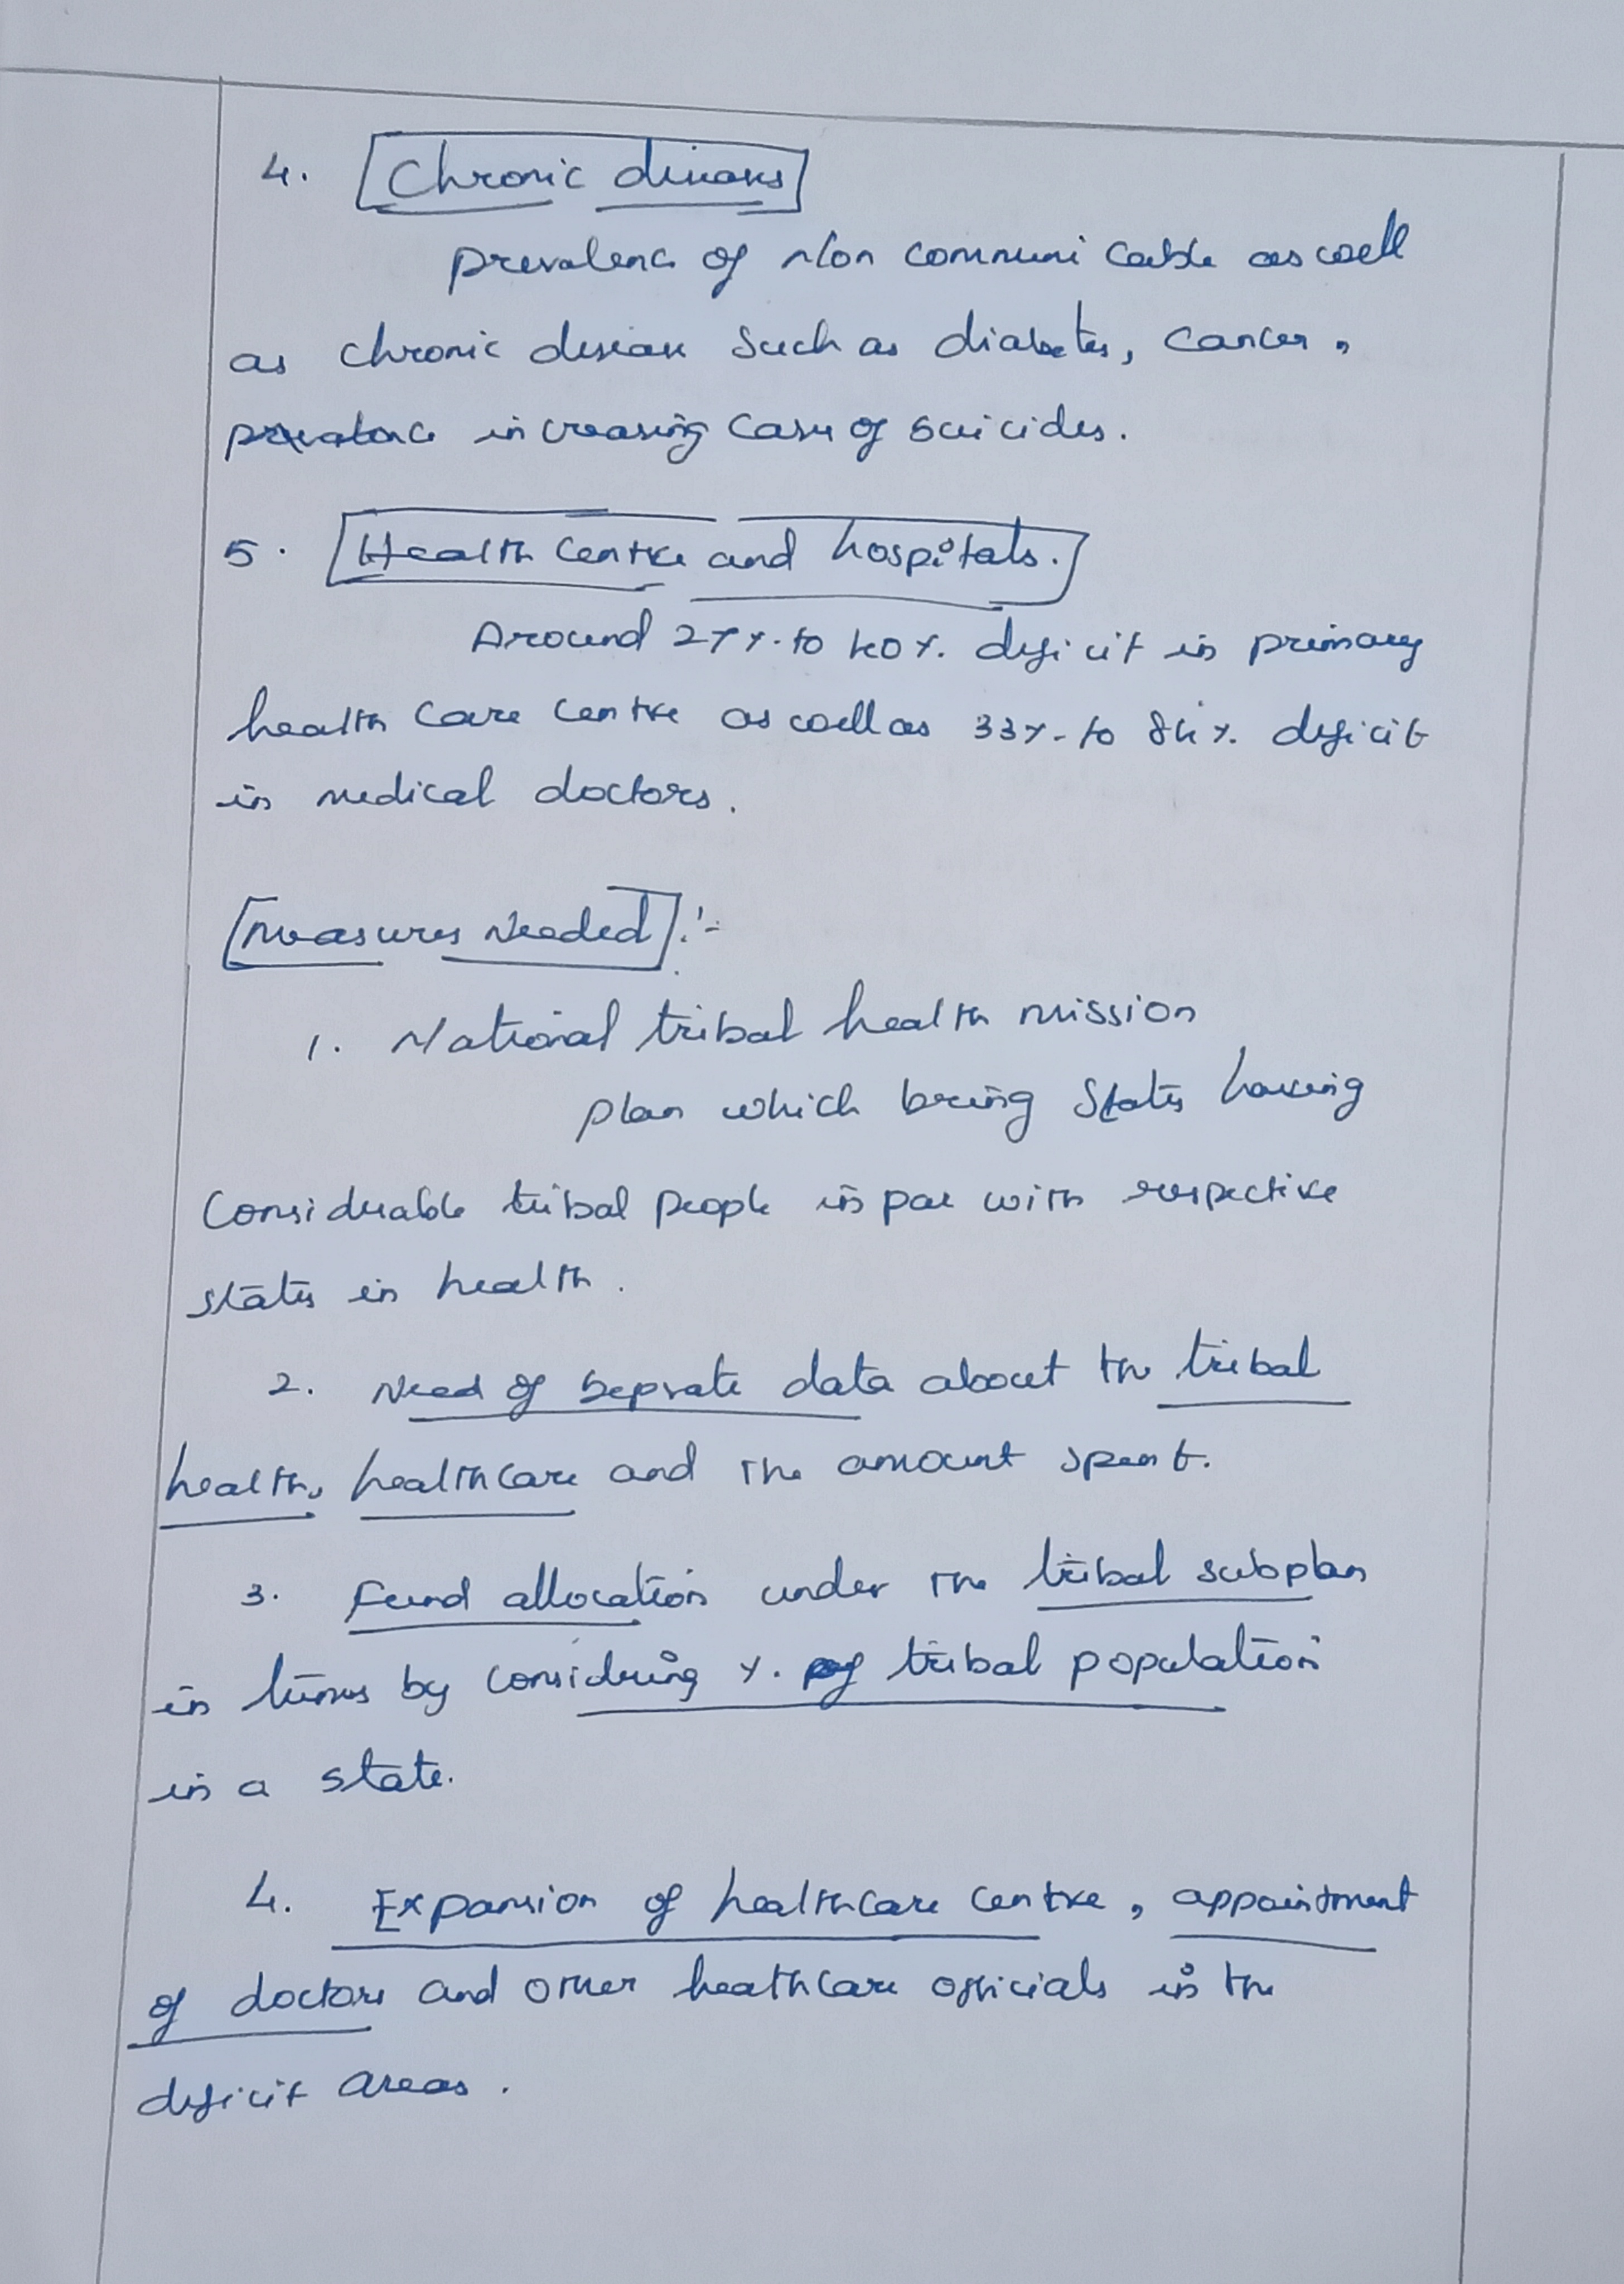 4. Chronic diseases
Prevalence of Non communicable as well
as chronic disease such as diabetes, cancer,
increasing case of suicides.
5. Health centre and hospitals.
Around 27% to 40% deficit in primary
health care centre as well as 33% to 84% deficit
in medical doctors.
Measures Needed :-
1. National tribal health mission
plan which bring States having
Considerable tribal people in par with respective
states in health.
2. Need of seprate data about the tribal
health, healthcare and the amount spent.
3. Fund allocation under the tribal subplan
in times by considering % of tribal population
in a state.
4. Expansion of healthcare centre, appointment
of doctors and other heathcare officials in the
deficit areas.